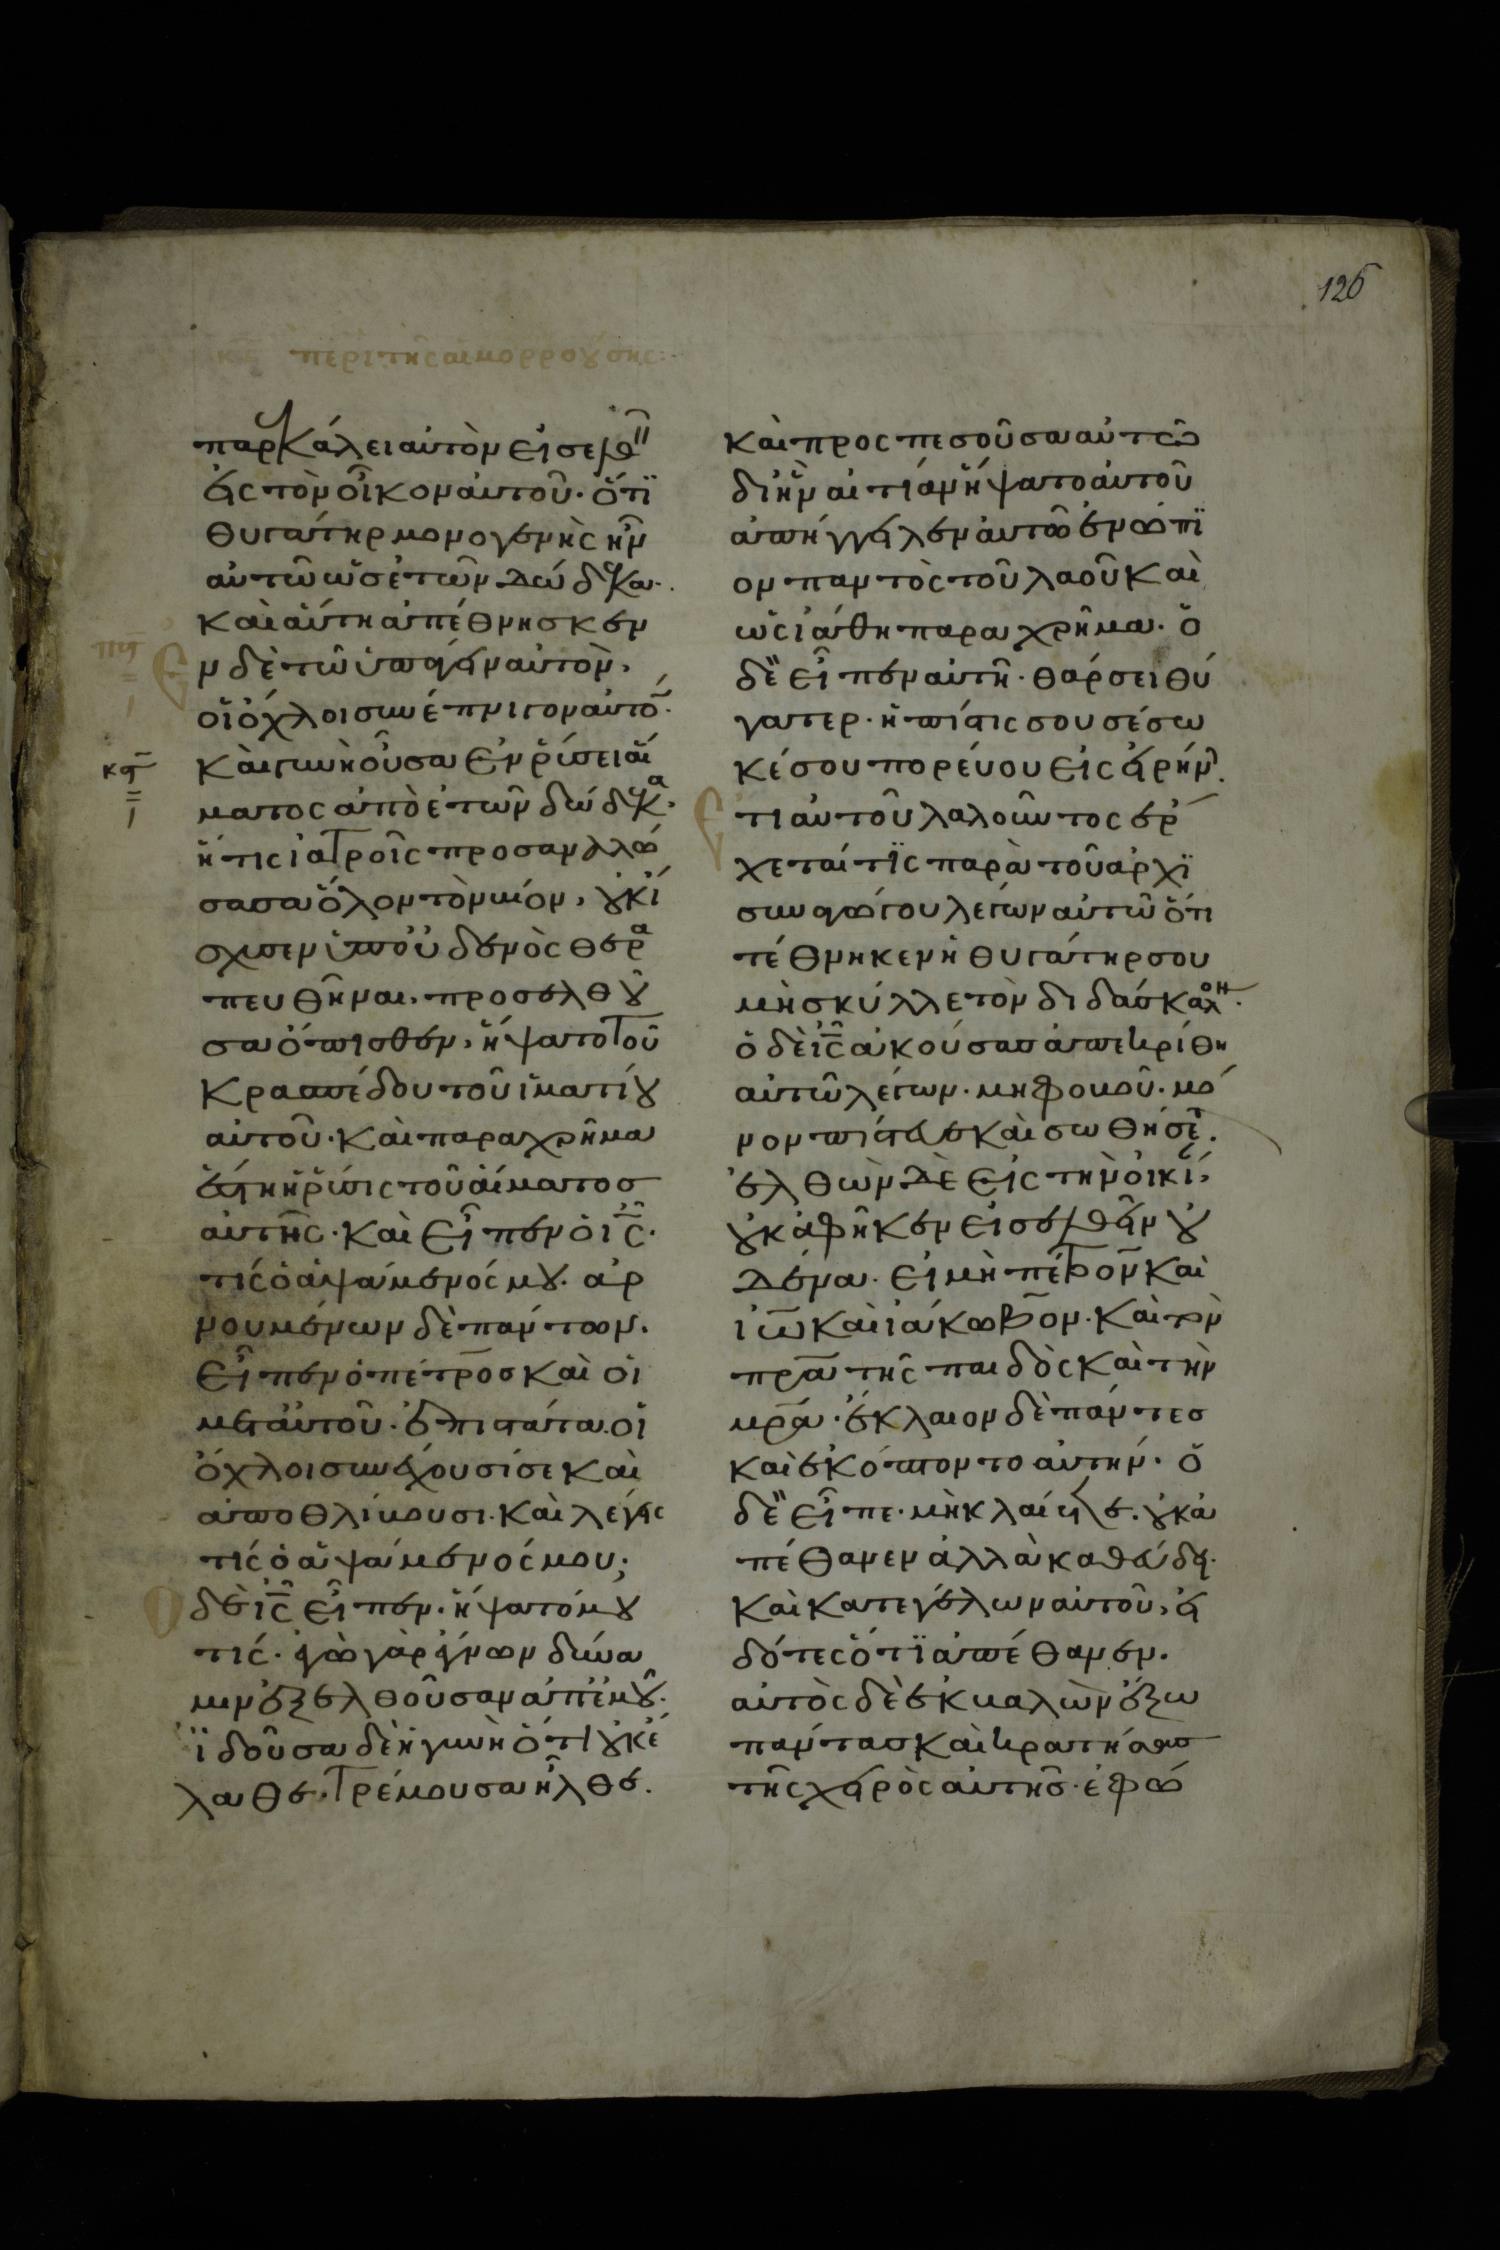 126
κε περι της αιμορροουσης
παρεκάλει αὐτὸν εἰσελθεῖν
εἰς τὸν οἶκον αὐτοῦ· ὅτϊ
θυγάτηρ μονογενὴς ἦν
αὐτῶ ὡσ ἐτῶν δώδεκα·
καὶ αὕτη ἀπέθνησκεν
ν δὲ τῶ ὑπάγειν αὐτὸν,
οἱ ὄχλοι συνέπνιγον αὐτό̅·
καὶ γυνὴ οὖσα ἐν ῥύσει αἵ
ματος ἀπὸ ἐτῶν δώδεκα·
ἥτις ἰατροῖς προσαναλώ
σασα ὅλον τὸν βίον, οὐκ ἴ
σχυσεν ὑπ' οὐδενὸς θερα
πευθῆναι, προσελθοῦ
σα ὄπισθεν, ἥψατο τοῦ
κρασπέδου τοῦ ἱματίου
αὐτοῦ· καὶ παραχρῆμα
ἔστη ἡ ῥύσις τοῦ αἵματοσ
αὐτῆς· καὶ εἶπεν ὁ ι̅ς̅·
τίς ὁ ἁψάμενός μου· ἀρ
νουμένων δὲ πάντων.
εἶπεν ὁ πέτρος καὶ οἱ
μετ αὐτοῦ· ἐπιστάτα· οἱ
ὄχλοι συνέχουσί σε καὶ
ἀποθλίβουσι· καὶ λέγεις
τίς ὁ ἁψάμενός μου;
Ο δὲ ι̅ς̅ εἶπεν· ἥψατό μου
τίς· ἐγὼ γὰρ ἔγνων δύνα
μιν ἐξελθοῦσαν ἀπ' ἐμοῦ·
ϊδοῦσα δὲ ἡ γυνὴ ὅτι οὐκ ἔ
λαθε· τρέμουσα ἦλθε.
κδ̅
καὶ προσπεσοῦσα αὐτῶ
δι ἣν αἰτίαν ἥψατο αὐτοῦ
ἀπήγγειλεν αὐτῶ ἐνώπϊ
ον παντὸς τοῦ λαοῦ καὶ
ὡς ἰάθη παραχρῆμα· ὁ
δὲ εἶπεν αὐτῆ· θάρσει θύ
γατερ· ἡ πίστις σου σέσω
κέ σου πορεύου εἰς εἰρήνην·
Ε τι αὐτοῦ λαλοῦντος ἔρ
χεταί τϊς παρὰ τοῦ ἀρχϊ
συναγώγου λέγων αὐτῶ ὅτι
τέθνηκεν ἡ θυγάτηρ σου
μὴ σκύλλε τὸν διδάσκαλον·
ὁ δὲ ι̅ς̅ ἀκούσασ ἀπεκρίθη
αὐτῶ λέγων· μὴ φοβοῦ· μό
νον πίστευε καὶ σωθήσεται·
ἐλθὼν δὲ εἰς τὴν οἰκίαν,
οὐκ ἀφῆκεν εἰσελθεῖν οὐ
δένα· εἰ μὴ πέτρον καὶ
ἰω̅ καὶ ἰάκωβον· καὶ τὸν
πρ̅α τῆς παιδὸς καὶ τὴν
μρ̅α· ἔκλαιον δὲ πάντεσ
καὶ ἐκόπτοντο αὐτήν· ὁ
δὲ εἶπε· μὴ κλαίετε· οὐκ ἀ
πέθανεν ἀλλὰ καθεύδει·
καὶ κατεγέλων αὐτοῦ, εἰ
δότες ὅτϊ ἀπέθανεν.
αὐτὸς δὲ ἐκβαλὼν ἔξω
πάντασ καὶ κρατήσασ
τῆς χειρὸς αὐτῆσ· ἐφώ